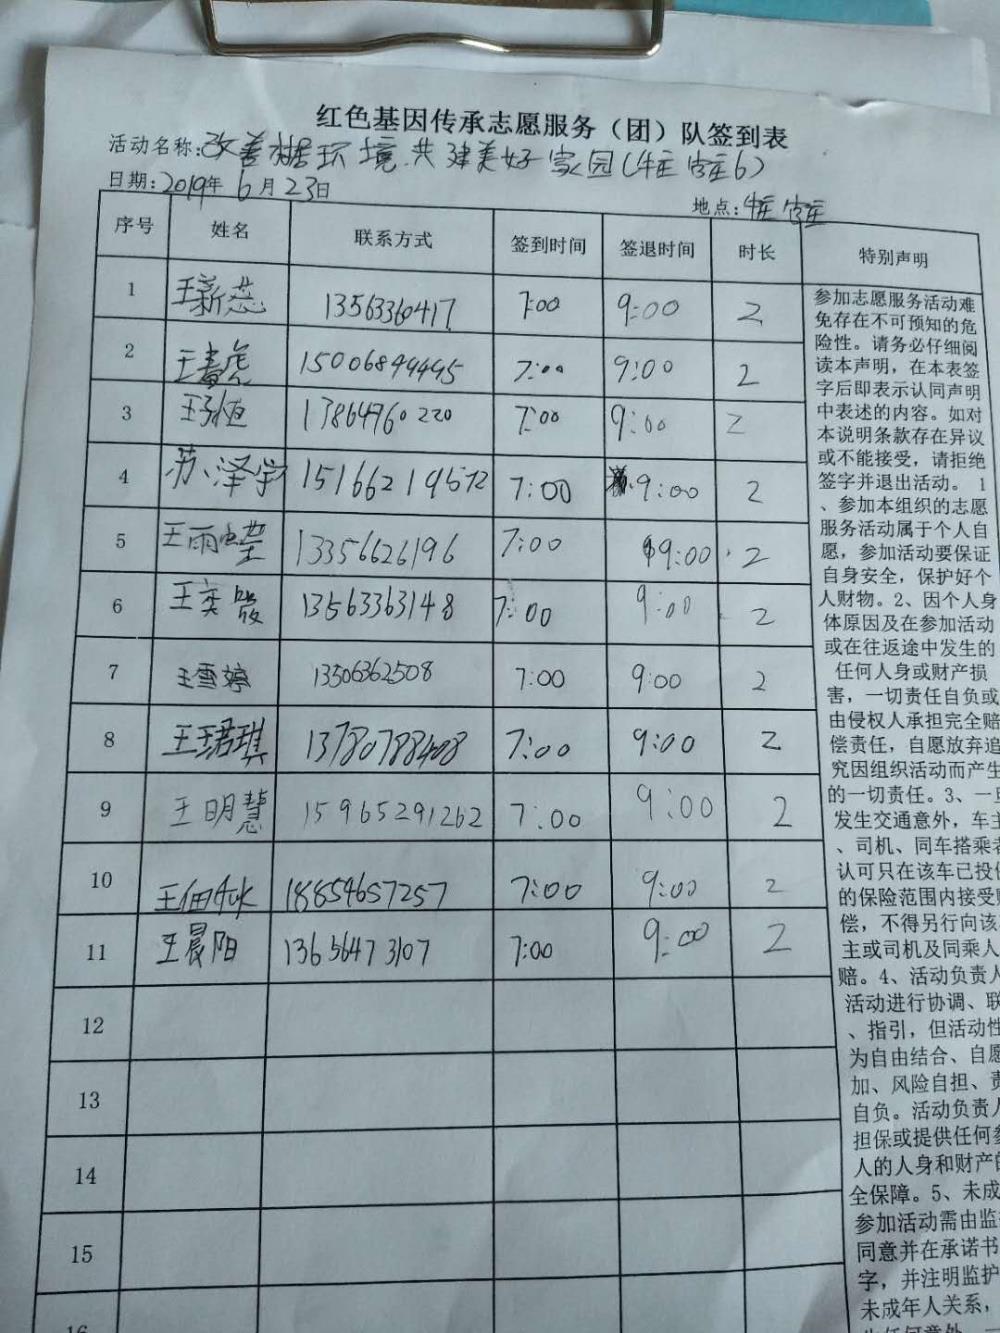 红色基因传承志愿服务（团）队签到表
活动名称:改善 环境共建美好家园(
日期:2019年6月23日
地点:
序号 姓名 联系方式 签到时间 签退时间 时长 特别声明
1 王新蕊 13563360417 7:00 9:00 2
2 15006899495 7:00 9:00 2
3 王孙恒 13864760220 7:00 9:00 2
4 苏泽宇 15166219572 7:00 9:00 2
5 王雨莹 13356626196 7:00 9:00 2
6 王奕 13563363148 7:00 9:00 2
7 王雪婷 13506362508 7:00 9:00 2
8 王珺琪 13780788408 7:00 9:00 2
9 王明慧 15965291262 7:00 9:00 2
10 王佃 18854657257 7:00 9:00 2
11 王晨阳 13656473107 7:00 9:00 2
12
13
14
15
16
参加志愿服务活动难
免存在不可预知的危
险性。请务必仔细阅
读本声明，在本表签
字后即表示认同声明
中表述的内容。如对
本说明条款存在异议
或不能接受，请拒绝
签字并退出活动。 1
、参加本组织的志愿
服务活动属于个人自
愿，参加活动要保证
自身安全，保护好个
人财物。2、因个人身
体原因及在参加活动
或在往返途中发生的
任何人身或财产损
害，一切责任自负或
由侵权人承担完全赔
偿责任，自愿放弃追
究因组织活动而产生
的一切责任。3、一旦
发生交通意外，车主
、司机、同车搭乘者
认可只在该车已投保
的保险范围内接受赔
偿，不得另行向该
主或司机及同乘人
赔。4、活动负责人
活动进行协调、联
、指引，但活动性
为自由结合、自愿
加、风险自担、责
自负。活动负责人
担保或提供任何参
人的人身和财产的
全保障。5、未成
参加活动需由监
同意并在承诺书
字，并注明监护
未成年人关系，